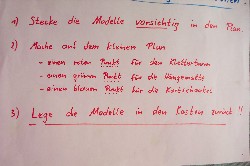 1) Stecke die Modelle vorsichtig in den Plan.
2) Mache auf dem kleinen Plan
- einen roten Punkt für den Kletterturm
- einen grünen Punkt für die Hängematte
- einen blauen Punkt für die Korbschaukel
3) Lege die Modelle in den Kasten zurück!!